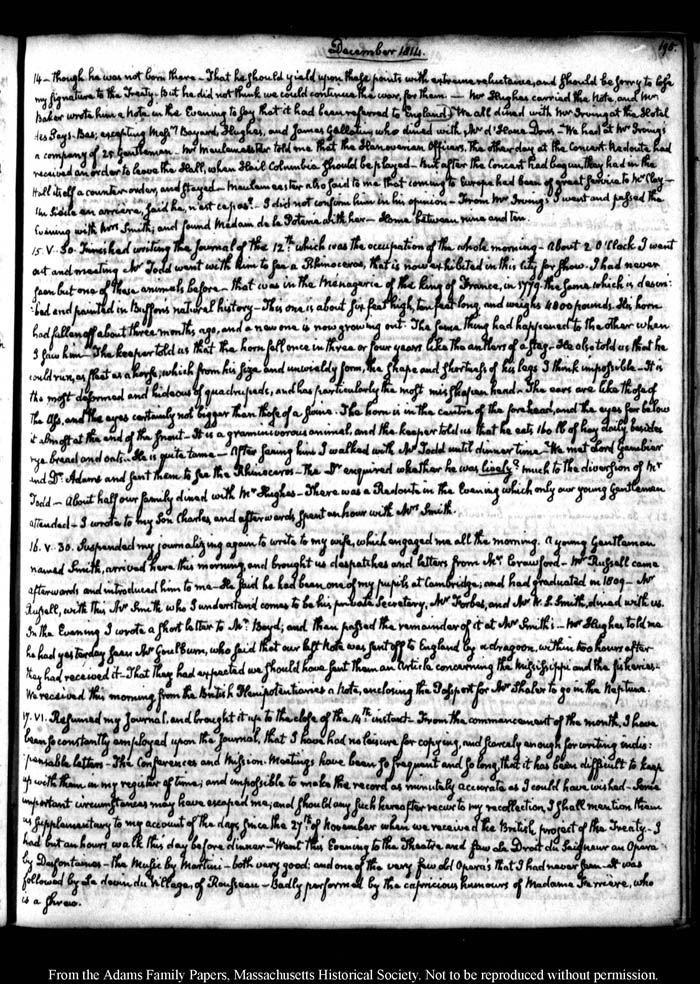 December 1814.
196.
14 - though he was not born there - That he should yield upon these points with extreme reluctance, and should be sorry to lose
my signature to the Treaty. But he did not think we could continue the war, for them. - Mr Hughes carried the Note, and Mr
Baker wrote him a Note in the Evening to say that it had been referred to England. We all dined with Mr Irving at the Hotel
des Pays-Bas, excepting Messrs Bayard, Hughes, and James Gallatin, who dined with Mr d'Hane - We had at Mr Irving's
a company of 25 Gentlemen. Mr Meulemeester told me that the Hanoverian Officers, the other day at the Concert Redoute had
received an order to leave the Hall, when Hail Columbia should be played - But after the Concert had begun, they had in the
Hall itself a counter-order, and stayed - Meulemeester also said to me that coming to Europe had been of great service to Mr Clay -
Un siècle en arrière, said he, n'est-ce pas? - I did not confirm him in his opinion - From Mr Irving's I went and passed the
Evening with Mrs Smith, and found Madam de la with her - Home between nine and ten.
15. V. 30. Finished writing the Journal of the 12th which was the occupation of the whole morning - About 2 O'Clock I went
out and meeting Mr Todd went with him to see a Rhinoceros, that is now exhibited in this City for show. I had never
seen but one of these animals before - that was in the Menagerie of the King of France, in 1779. the same which is descri:
:bed and painted in Buffons natural history - This one is about six feet high, ten feet long, and weighs 4800 pounds. His horn
had fallen off about three months ago, and a new one is now growing out. The same thing had happened to the other when
I saw him - The keeper told us that the horn fell once in three or four years like the antlers of a stag - He also told us that he
could run, as fast as a horse; which from his size and unwieldy form, the shape and shortness of his legs I think impossible - It is
the most deformed and hideous of quadrupeds, and has particularly the most misshapen head. The ears are like those of
the Ass, and the eyes certainly not bigger than those of a Swine. The horn is in the centre of the forehead, and the eyes far below
it almost at the end of the snout - It is a graminivorous animal, and the keeper told us that he eats 160 lb of hay daily besides
rye bread and oats. He is quite tame - After seeing him I walked with Mr Todd until dinner time - We met Lord Gambier
and Dr Adams and sent them to see the Rhinoceros - The Dr enquired whether he was lively? much to the diversion of Mr
Todd - About half our family dined with Mr Hughes - There was a Redoute in the Evening which only our young Gentlemen
attended - I wrote to my Son Charles, and afterwards spent an hour with Mrs Smith.
16. V. 30. Suspended my journalizing again to write to my wife, which engaged me all the morning. A young Gentleman
named Smith, arrived here this morning, and brought us despatches and letters from Mr Crawford - Mr Russell came
afterwards and introduced him to me - He said he had been one of my pupils at Cambridge; and had graduated in 1809 - Mr
Russell, with this Mr Smith who I understand comes to be his private Secretary, Mr Forbes, and Mr W. S. Smith, dined with us.
In the Evening I wrote a short letter to Mr Boyd; and then passed the remainder of it at Mr Smith's - Mr Hughes told me
he had yesterday seen Mr Goulburn, who said that our last Note was sent off to England by a dragoon, within two hours after
they had received it - That they had expected we should have sent them an Article concerning the Mississippi and the fisheries -
We received this morning from the British Plenipotentiaries a Note, enclosing the Passport for Mr Shaler to go in the Neptune.
17. VI. Resumed my Journal, and brought it up to the close of the 14th instant - From the commencement of the month, I have
been so constantly employed upon the Journal, that I have had no leisure for copying, and scarcely enough for writing indis:
:pensable letters - The Conferences and Mission-Meetings have been so frequent and so long, that it has been difficult to keep
up with them on my register of time; and impossible to make the record as minutely accurate as I could have wished - Some
important circumstances may have escaped me; and should any such hereafter recur to my recollection, I shall mention them
as supplementary to my account of the days since the 27th of November when we received the British project of the Treaty - I
had but an hours walk this day before dinner - Went this Evening to the Theatre and saw Le Droit du Seigneur an Opera
by Desfontaines - the Music by Martini - both very good; and one of the very few old Opera's that I had never seen - It was
followed by Le devin du Village, of Rousseau - Badly performed by the capricious humours of Madame Ferriere, who
is a shrew.
From the Adams Family Papers, Massachusetts Historical Society. Not to be reproduced without permission.